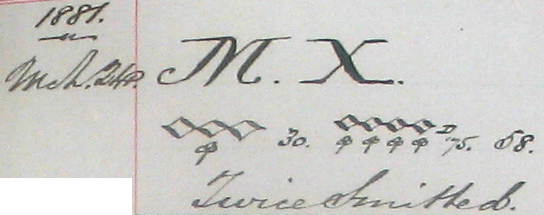 1881.
Mch. 24th. M. X.
30. D 75. 58.
Twice Smitted.